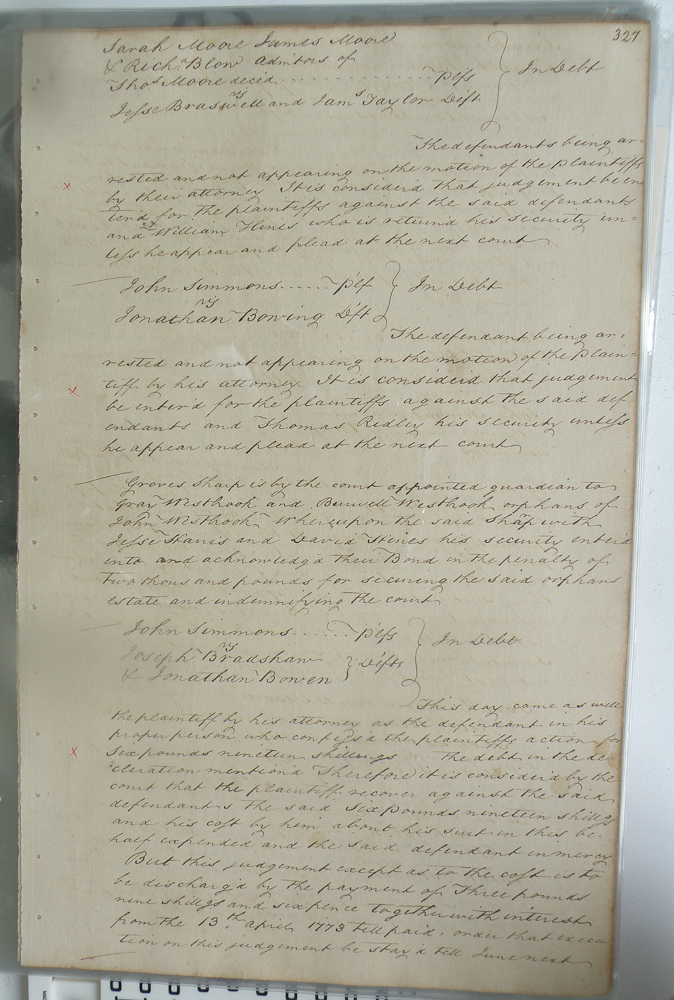 327
Sarah Moore James Moore
& Rich.d Blow admitors of
Thos Moore decd. . . . . . . . . . . . . . . plfs } In Debt
vs
Jesse Braswell and Jams Taylor Dift
The defendants being ar=
rested and not appearing on the motion of the plaintiffs
by their attorney It is considerd that judgement be en
terd for the plaintiffs against the said defendants
and William Hines who is returnd his security un=
less he appear and plead at the next court
John Simmons . . . . . plf } In Debt
vs
Jonathan Bowing Dft
The defendant being ar=
rested and not appearing on the motion of the plain=
tiff by his attorney It is considerd that judgement
be enter'd for the plaintiffs against the said def
endants and Thomas Ridley his security unless
he appear and plead at the next court
Groves Sharp is by the court appointed guardian to
Gray Westbrook and Burwell Westbrook orphans of
John Westbrook Whereupon the said Sharp with
Jesse Harris and David Hines his security enterd
into and acknowledgd their Bond in the penalty of
two thousand pounds for securing the said orphans
estate and indemnifying the court
John Simmons . . . . . plfs } In Debt
vs
Joseph Bradshaw } Difts
& Jonathan Bowen
This day came as well
the plaintiff by his attorney as the defendant in his
proper person who confess'd the plaintiffs action for
Six pounds nineteen shillings the debt in the de
cleration mention'd Therefore it is considerd by the
court that the plaintiff recover against the said
defendants the said Six pounds nineteen shillgs
and his cost by him about his suit in this be=
half expended and the said defendant in mercy
But this judgement except as to the cost is to
be discharg'd by the payment of Three pounds
nine shillgs and sixpence together with interest
from the 13th April 1773 till paid, order that execu
tion on this judgement be stay'd till June next